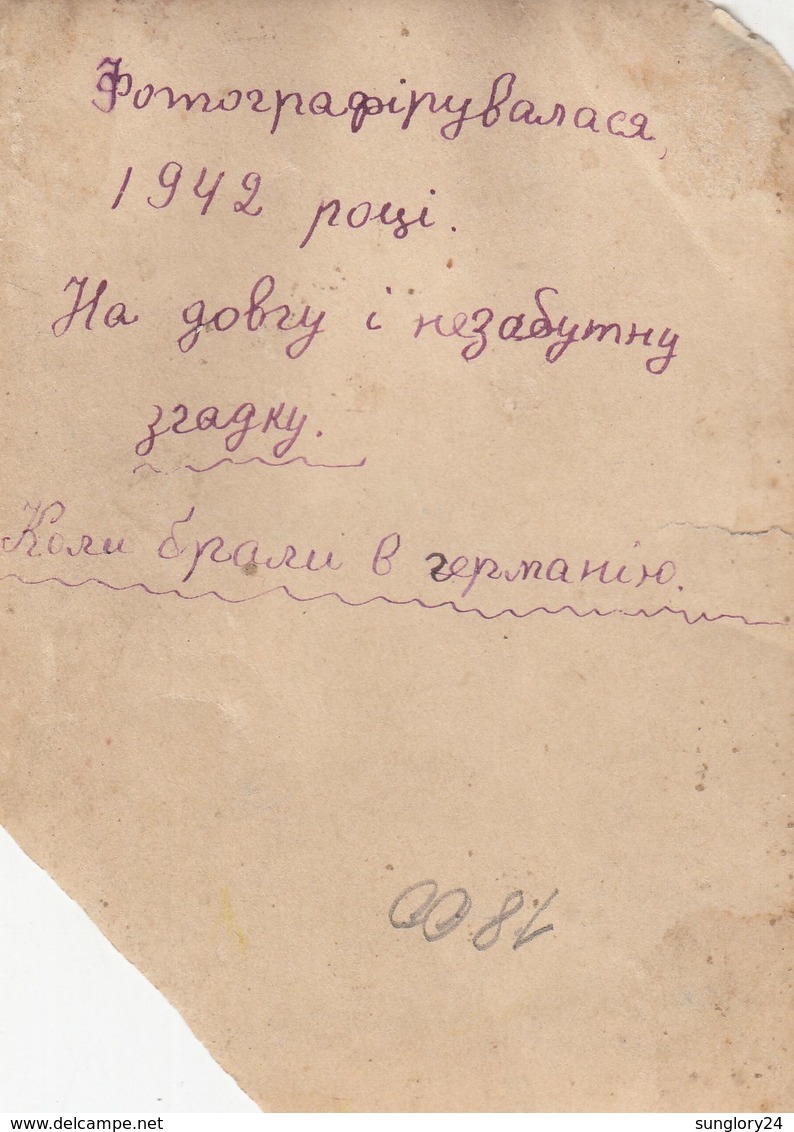 Фотографірувалася,
1942 році.
На довгу і незабутну
згадку.
Коли брали в германію.
1800
www.delcampe.net
sunglory24